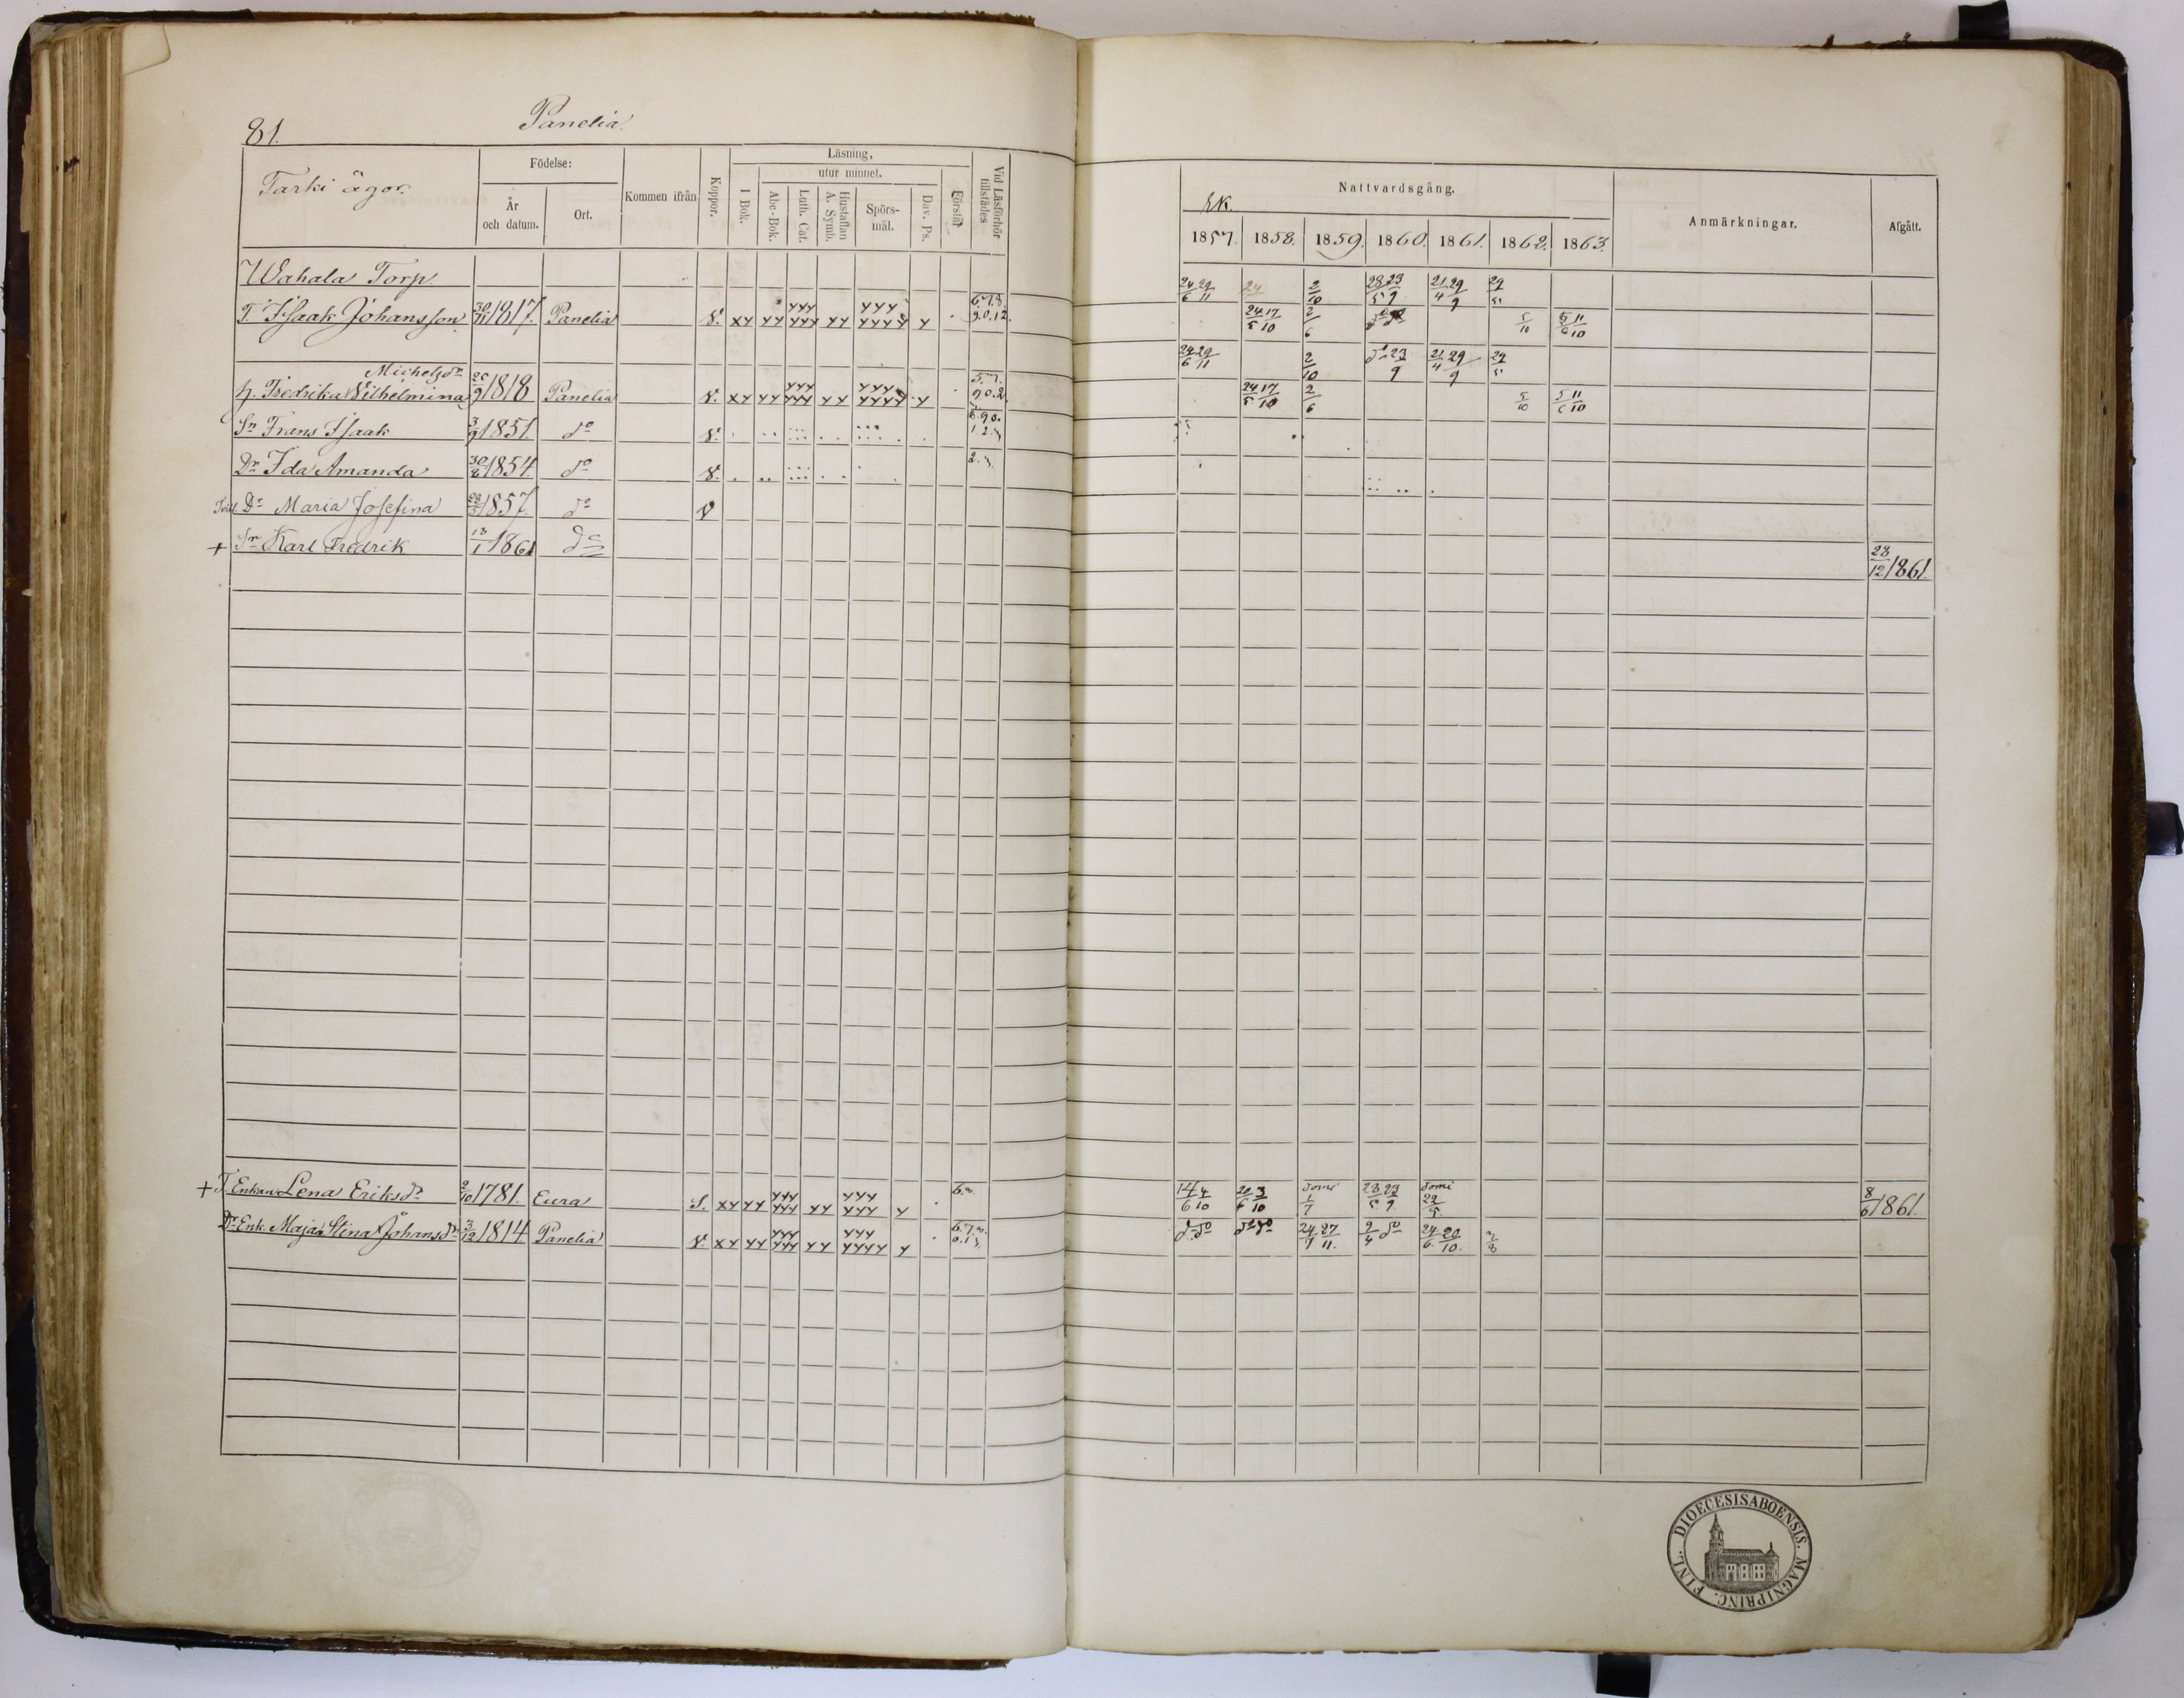 81.
Panelia.
Tarki ägor.
Födelse:
År och datum.
Ort.
Kommen ifrån
Koppor.
Läsning,
I Bok.
utur minnet.
Abc-Bok.
Luth. Cat.
Hustaflan A. Symb.
Spörs-mål.
Dav. Ps.
Förstår
Vid Läsförhör tillstädes
Nattvardsgång.
1857. 1858. 1859. 1860. 1861. 1862. 1863.
Anmärkningar.
Afgått.
Wahala Torp.
24/6 29/11 24 2/10 28/5 23/9 21/4 29/9 29/5
T. Isaak Johansson 30/11 1817. Panelia v. xy yy yyy yyy yy yyy yyyy y 6.7.8. 9.0.12.
24/5 17/10 2/6 5/10 5/6 11/10
24/6 29/11 2/10 do 23/9 21/4 29/9 29/5
Michelsdr
H. Fredrika Wilhelmina 25/9 1818 Panelia v. xy yy yyy yyy yy yyy yyyy y 5.7. 9.0.2.
24/5 17/10 2/6 5/10 5/6 11/10
Sn Frans Isaak 3/9 1851. do v. 8.9.0. 1.2.3
Dr Ida Amanda 30/8 1854. do v. 2.3.
Dr Maria Josefina 1857. do v
+ Sn Karl Fredrik 13/1 1861 do 28/12 1861.
+ T. Enkan Lena Eriksdr 2/10 1781. Eura S. xy yy yyy yyy yy yyy yyy y 6.
14/6 4/10 20/6 3/10 domi 1/7 23/5 23/9 domi 29/5 8/6 1861.
Dr Enk. Maja Stina Johansdr 3/12 1814 Panelia v. xy yy yyy yyy yy yyy yyyy y 6.7. 0.1.3.
do do do do 24/7 27/11. 2/4 do 24/6 20/10. 3/8
DIOECESIS ABOENSIS. MAGNI PRINC. FINL.